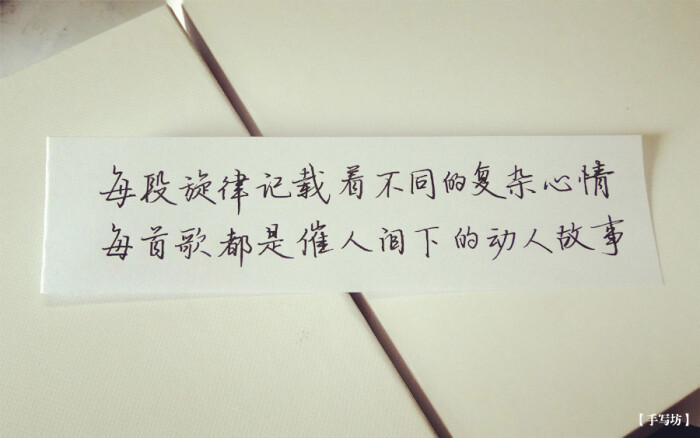 每段旋律记载着不同的复杂心情
每首歌都是催人泪下的动人故事
【手写坊】